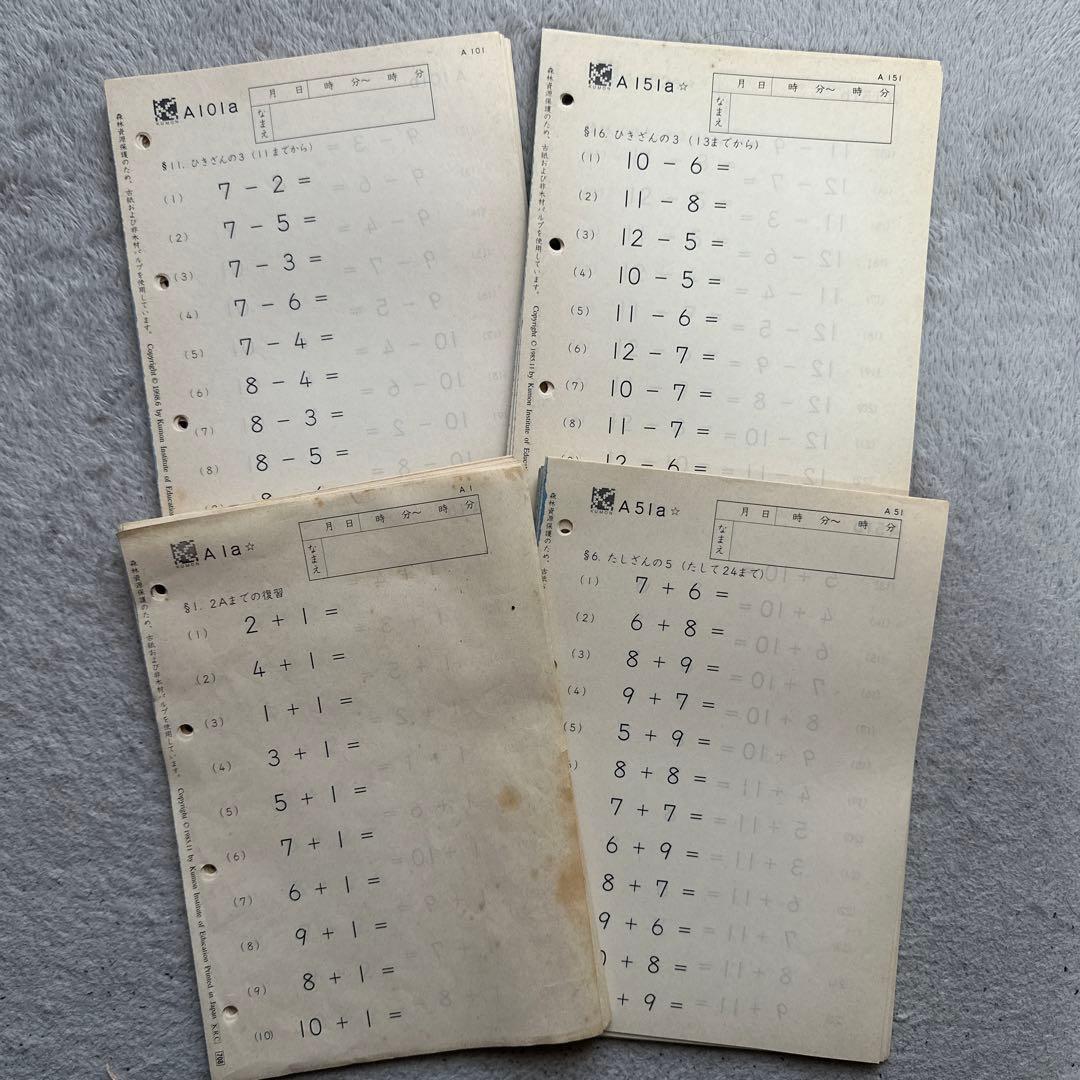 A 101
KUMON A101a
月 日 時 分〜 時 分
なまえ
§11. ひきざんの3（11までから）
(1) 7 − 2 =
(2) 7 − 5 =
(3) 7 − 3 =
(4) 7 − 6 =
(5) 7 − 4 =
(6) 8 − 4 =
(7) 8 − 3 =
(8) 8 − 5 =
森林資源保護のため、古紙および非木材パルプを使用しています。 Copyright © 1998.6 by Kumon Institute of Education
A 151
KUMON A151a☆
月 日 時 分〜 時 分
なまえ
§16. ひきざんの3（13までから）
(1) 10 − 6 =
(2) 11 − 8 =
(3) 12 − 5 =
(4) 10 − 5 =
(5) 11 − 6 =
(6) 12 − 7 =
(7) 10 − 7 =
(8) 11 − 7 =
12 − 6 =
森林資源保護のため、古紙および非木材パルプを使用しています。 Copyright © 1985.11 by Kumon Institute of Educat
A 1
KUMON A1a☆
月 日 時 分〜 時 分
なまえ
§1. 2Aまでの復習
(1) 2 + 1 =
(2) 4 + 1 =
(3) 1 + 1 =
(4) 3 + 1 =
(5) 5 + 1 =
(6) 7 + 1 =
(7) 6 + 1 =
(8) 9 + 1 =
(9) 8 + 1 =
(10) 10 + 1 =
森林資源保護のため、古紙および非木材パルプを使用しています。 Copyright © 1985.11 by Kumon Institute of Education Printed in Japan
A 51
KUMON A51a☆
月 日 時 分〜 時 分
なまえ
§6. たしざんの5（たして24まで）
(1) 7 + 6 =
(2) 6 + 8 =
(3) 8 + 9 =
(4) 9 + 7 =
(5) 5 + 9 =
8 + 8 =
7 + 7 =
6 + 9 =
8 + 7 =
9 + 6 =
+ 8 =
+ 9 =
森林資源保護のため、古紙